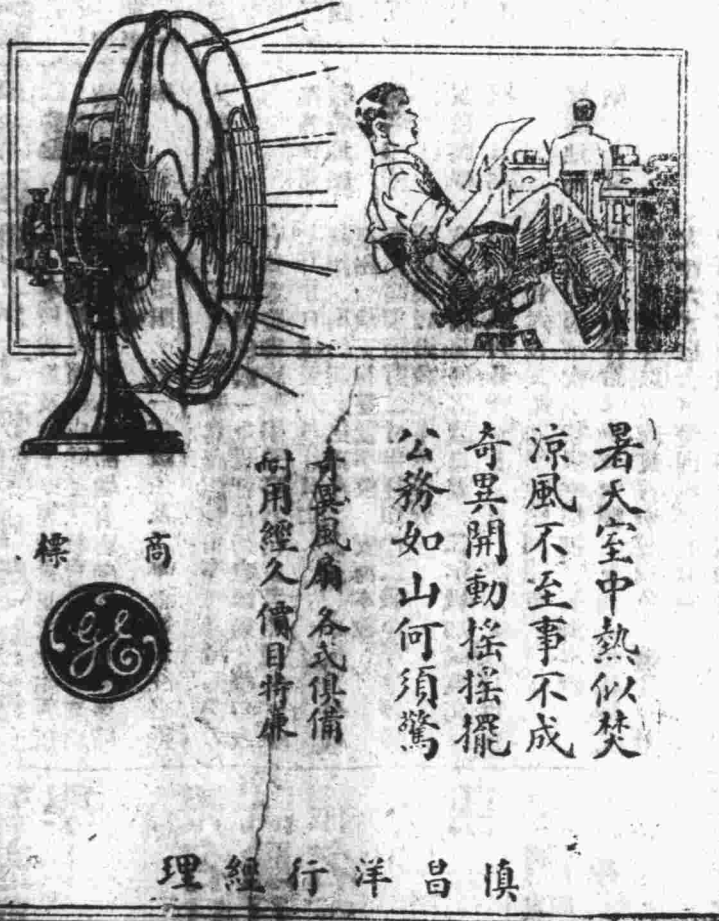 暑天室中熱似焚
涼風不至事不成
奇異開動搖搖擺
公務如山何須驚
奇異風扇各式俱備
耐用經久價目特廉
商標
GE
慎昌洋行經理